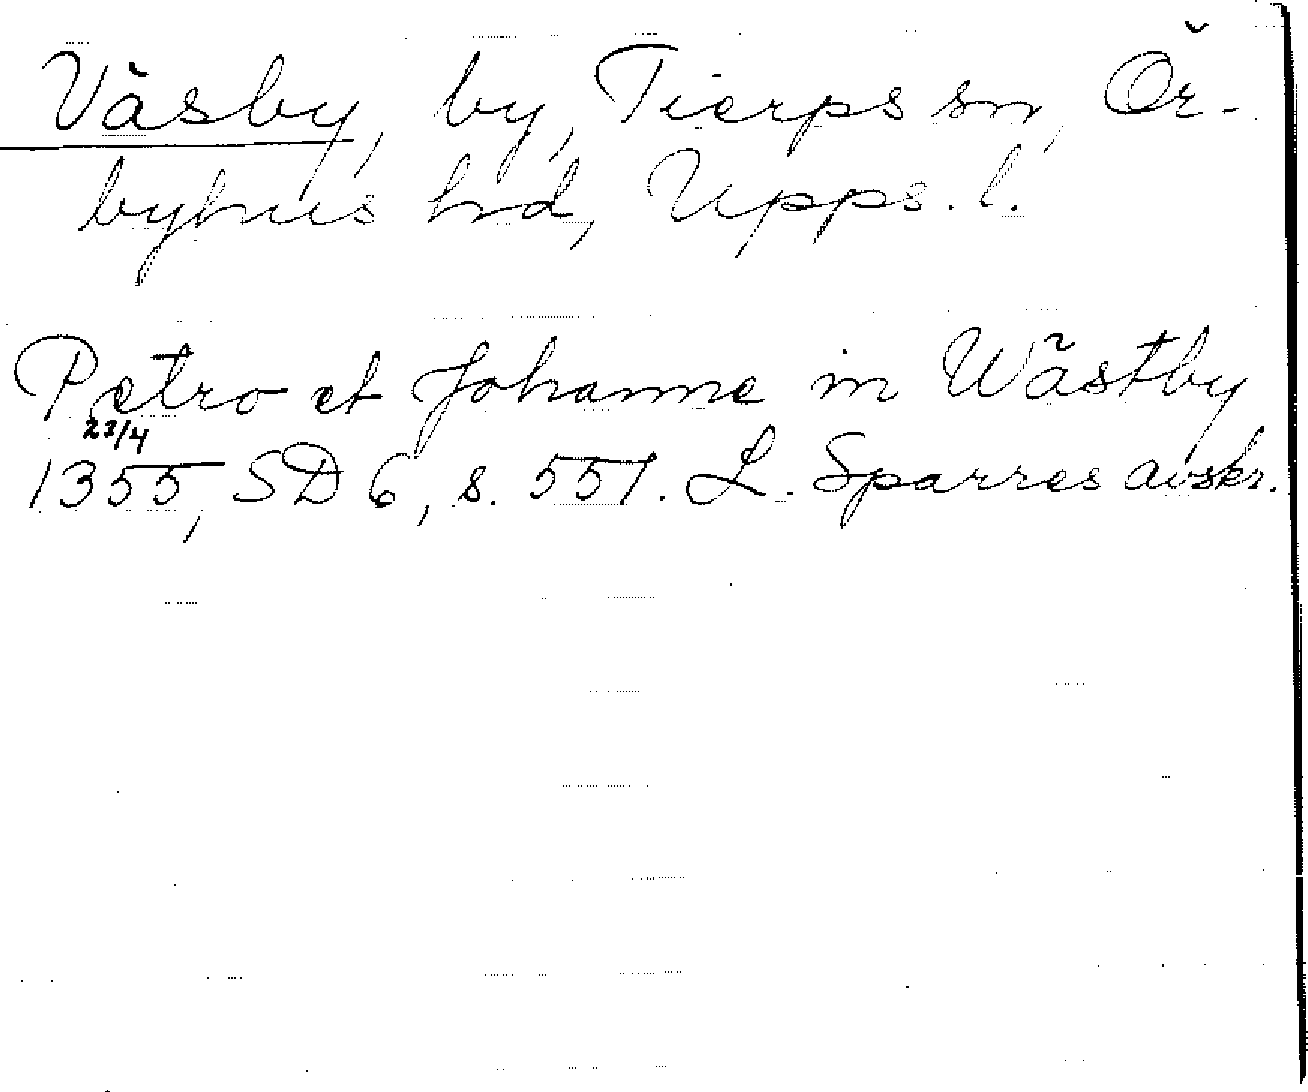 Väsby, by, Tierps sn, Ör-
byhus hd, Upps. l.
Petro et Johanne in Wästby
23/4
1355, SD 6, s. 551. L. Sparres avskr.